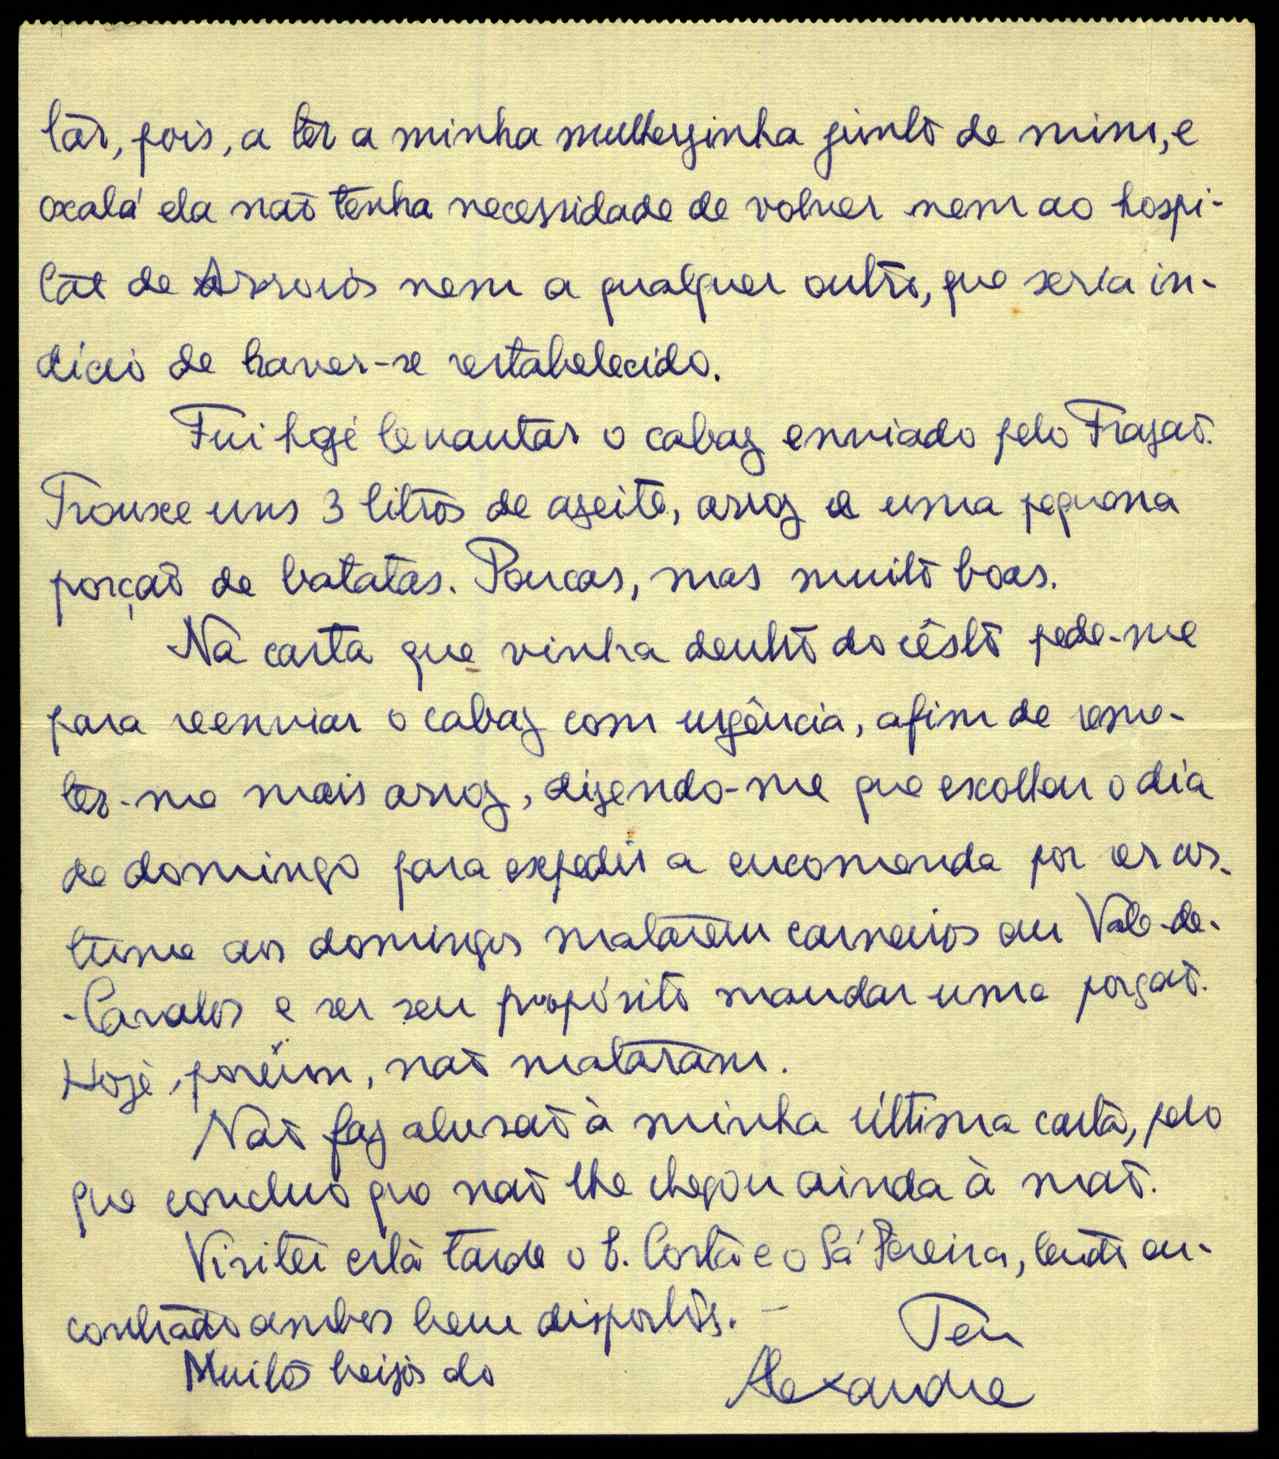 tar, pois, a ter a minha mulherzinha junto de mim, e
oxalá ela não tenha necessidade de volver nem ao hospi-
tal de Arroios nem a qualquer outro, que seria in-
dício de haver-se restabelecido.
Fui hoje levantar o cabaz enviado pelo Frazão.
Trouxe uns 3 litros de azeite, arroz e uma pequena
porção de batatas. Poucas, mas muito boas.
Na carta que vinha dentro do cêsto pede-me
para reenviar o cabaz com urgência, afim de reme-
ter-me mais arroz, dizendo-me que escolheu o dia
de domingo para expedir a encomenda por ser cos-
tume aos domingos matarem carneiros em Vale-de-
-Cavalos e ser seu propósito mandar uma porção.
Hoje, porém, não mataram.
Não faz alusão à minha última carta, pelo
que concluo que não lhe chegou ainda à mão.
Visitei esta tarde o S. Costa e o Sá Pereira, tendo en-
contrado ambos bem dispostos. —
Teu
Muitos beijos do
Alexandre